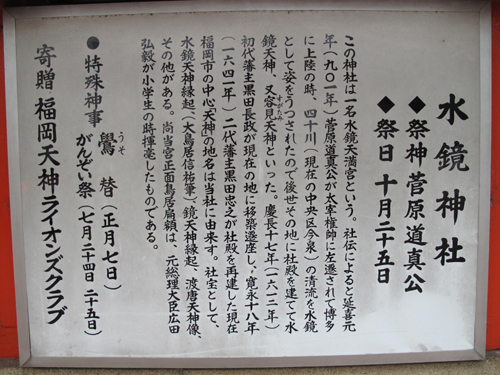 水鏡神社
◆祭神菅原道真公
◆祭日十月二十五日
この神社は一名水鏡天満宮という。社伝によると延喜元
年(九〇一年)菅原道真公が太宰権帥に左遷されて博多
に上陸の時、四十川(現在の中央区今泉)の清流を水鏡
として姿をうつされたので後世その地に社殿を建てて水
鏡天神、又容見天神といった。慶長十七年(一六一二年)
すがたみ
初代藩主黒田長政が現在の地に移築遷座し、寛永十八年
(一六四一年)二代藩主黒田忠之が社殿を再建した現在
福岡市の中心「天神」の地名は当社に由来す。社宝として、
水鏡天神縁起(大鳥居信祐筆)鏡天神縁起、渡唐天神像、
その他がある。尚当宮正面鳥居扁額は、元総理大臣広田
弘毅が小学生の時揮毫したものである。
●特殊神事 鷽替(正月七日)
うそ
がんどい祭(七月二十四日 二十五日)
寄贈 福岡天神ライオンズクラブ